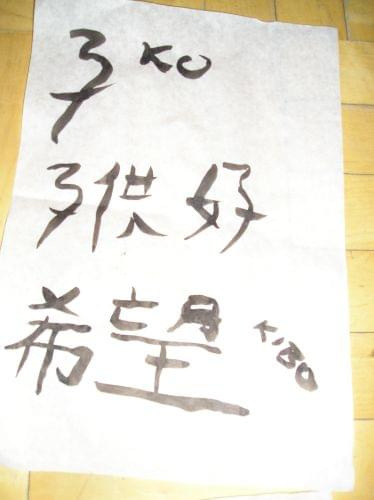 子 KO
子供 好
希望 KiBO